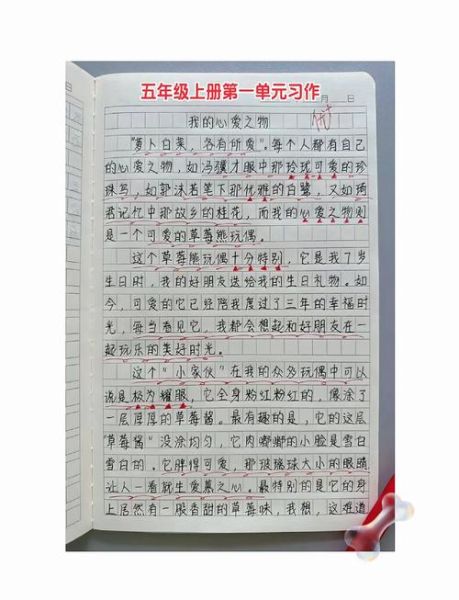 五年级上册第一单元习作
月 日
优+
我的心爱之物
“萝卜白菜，各有所爱”。每个人都有自己
的心爱之物，如冯骥才眼中那玲珑可爱的珍
珠鸟，如郭沫若笔下那优雅的白鹭，又如琦
君记忆中那故乡的桂花，而我的心爱之物则
是一个可爱的草莓熊玩偶。
这个草莓熊玩偶十分特别，它是我7岁
生日时，我的好朋友送给我的生日礼物。如
今，可爱的它已经陪我度过了三年的幸福时
光，每当看见它，我都会想起和好朋友在一
起玩乐的美好时光。
这个“小家伙”在我的众多玩偶中可以
说是极为耀眼，它全身粉红粉红的，像涂了
一层厚厚的草莓酱。最有趣的是，它的这层
“草莓酱”没涂均匀，它肉嘟嘟的小脸是雪白
雪白的。它胖得可爱，那玻璃球大小的眼睛
让人一看就生爱慕之心。最特别的是它的身
上居然有一股香甜的草莓味，我想，这难道